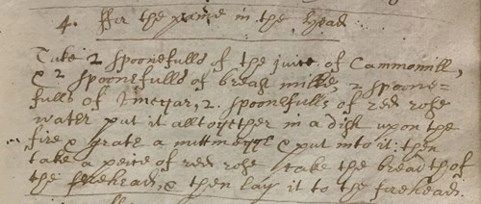 4. ffor the paine in the head
Take 2 spoonefulls of the juice of Cammomill,
& 2 spoonefulls of breast milke, 2 spoone=
fulls of Vinegar, 2. spoonefulls of red rose
water put it alltogether in a dish upon the
fire & grate a nuttmegg & put into it: then
take a peice of red rose take the breadth of
the forehead, & then lay it to the forehead.